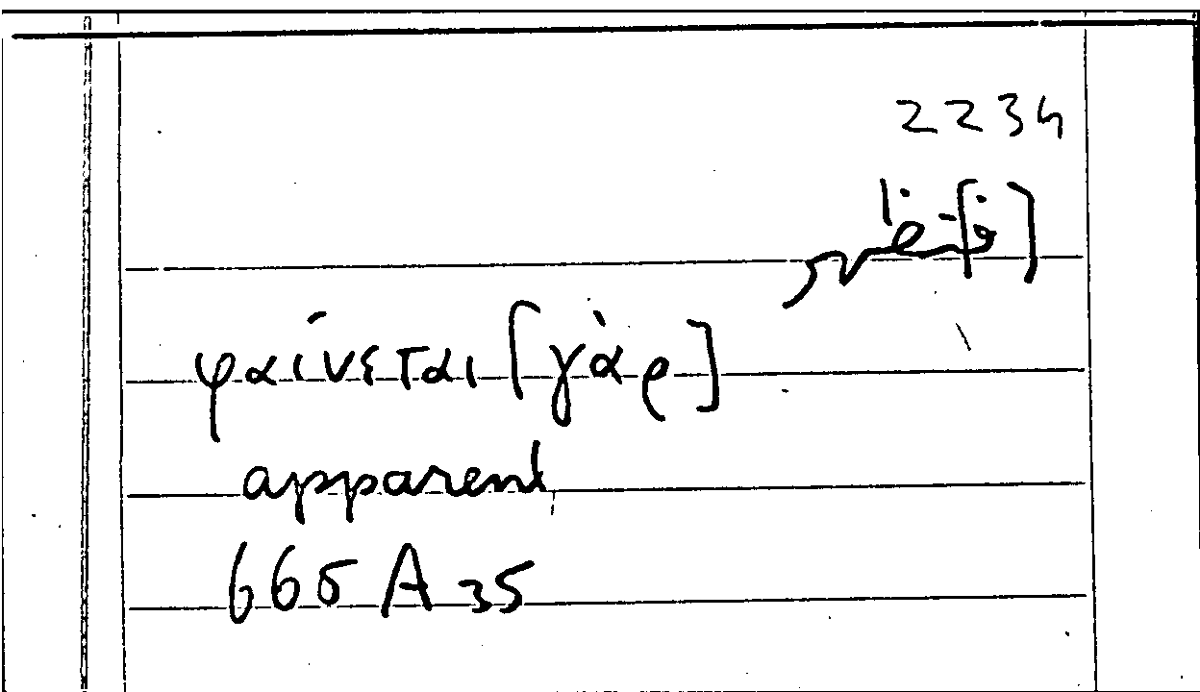 2234
φαίνεται [γὰρ]
apparent
665 A 35